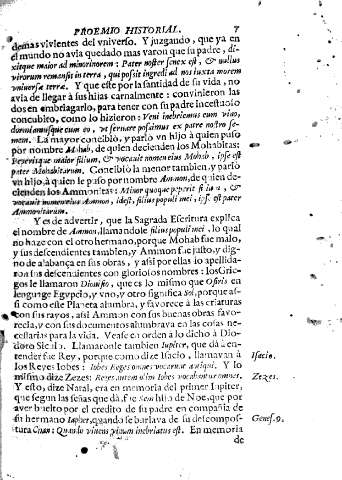 PROEMIO HISTORIAL. 7
demas vivientes del vniverso. Y juzgando, que ya en
el mundo no avia quedado mas varon que su padre, di-
xit que maior ad minorinorem: Pater noster senex est, & nullus
virorum remansit in terra, qui possit ingredi ad nos iuxta morem
vniversæ terræ. Y que este por la santidad de su vida, no
avia de llegar à sus hijas carnalmente: convinieron las
dos en embriagarlo, para tener con su padre incestuoso
concubito, como lo hizieron: Veni inebriemus eum vino,
dormiamusque cum eo, vt servare possimus ex patre nostro se-
men. La mayor concibiò, y parlo vn hijo à quien puso
por nombre Mohab, de quien decienden los Mohabitas:
Peperitque maior filium, & vocavit nomen eius Mohab, ipse est
pater Mohabitarum. Concibio la menor tambien, y pario
vn hijo, à quien le puso por nombre Ammon, de quien de-
cienden los Ammonitas: Minor quoque peperit filium, &
vocavit nomen eius Ammon, idest, filius populi mei, ipse est pater
Ammonitarum.
Y es de advertir, que la Sagrada Escritura explica
el nombre de Ammon, llamandole filius populi mei, lo qual
no haze con el otro hermano, porque Mohab fue malo,
y sus descendientes tambien, y Ammon fue justo, y dig-
no de alabança en sus obras, y assi por ellas lo apellida-
ron sus descendientes con gloriosos nombres: los Grie-
gos le llamaron Dionisio, que es lo mismo que Osiris en
lenguage Egypcio, y vno, y otro significa Sol, porque as-
si como este Planeta alumbra, y favorece à las criaturas
con sus rayos, assi Ammon con sus buenas obras favo-
recia, y con sus documentos alumbrava en las cosas ne-
cessarias para la vida. Vease en orden à lo dicho à Dio-
doro Siculo. Llamaronle tambien Iupiter, que dà à en-
tender fue Rey, porque como dize Isacio, llamavan à
Isacio.
los Reyes Iobes: Iobes Reges omnes vocarunt antiqui. Y lo
mismo dize Zezes: Reges autem olim Iobes vocabant omnes.
Zezes.
Y esto, dize Natal, era en memoria del primer Iupiter,
que segun las señas que dà, fue Sem hijo de Noe, que por
aver buelto por el credito de su padre en compañia de
su hermano Iaphet, quando se burlava de su descompos-
Genes. 9.
tura Chan: Quando vinens primum inebriatus est. En memoria
de